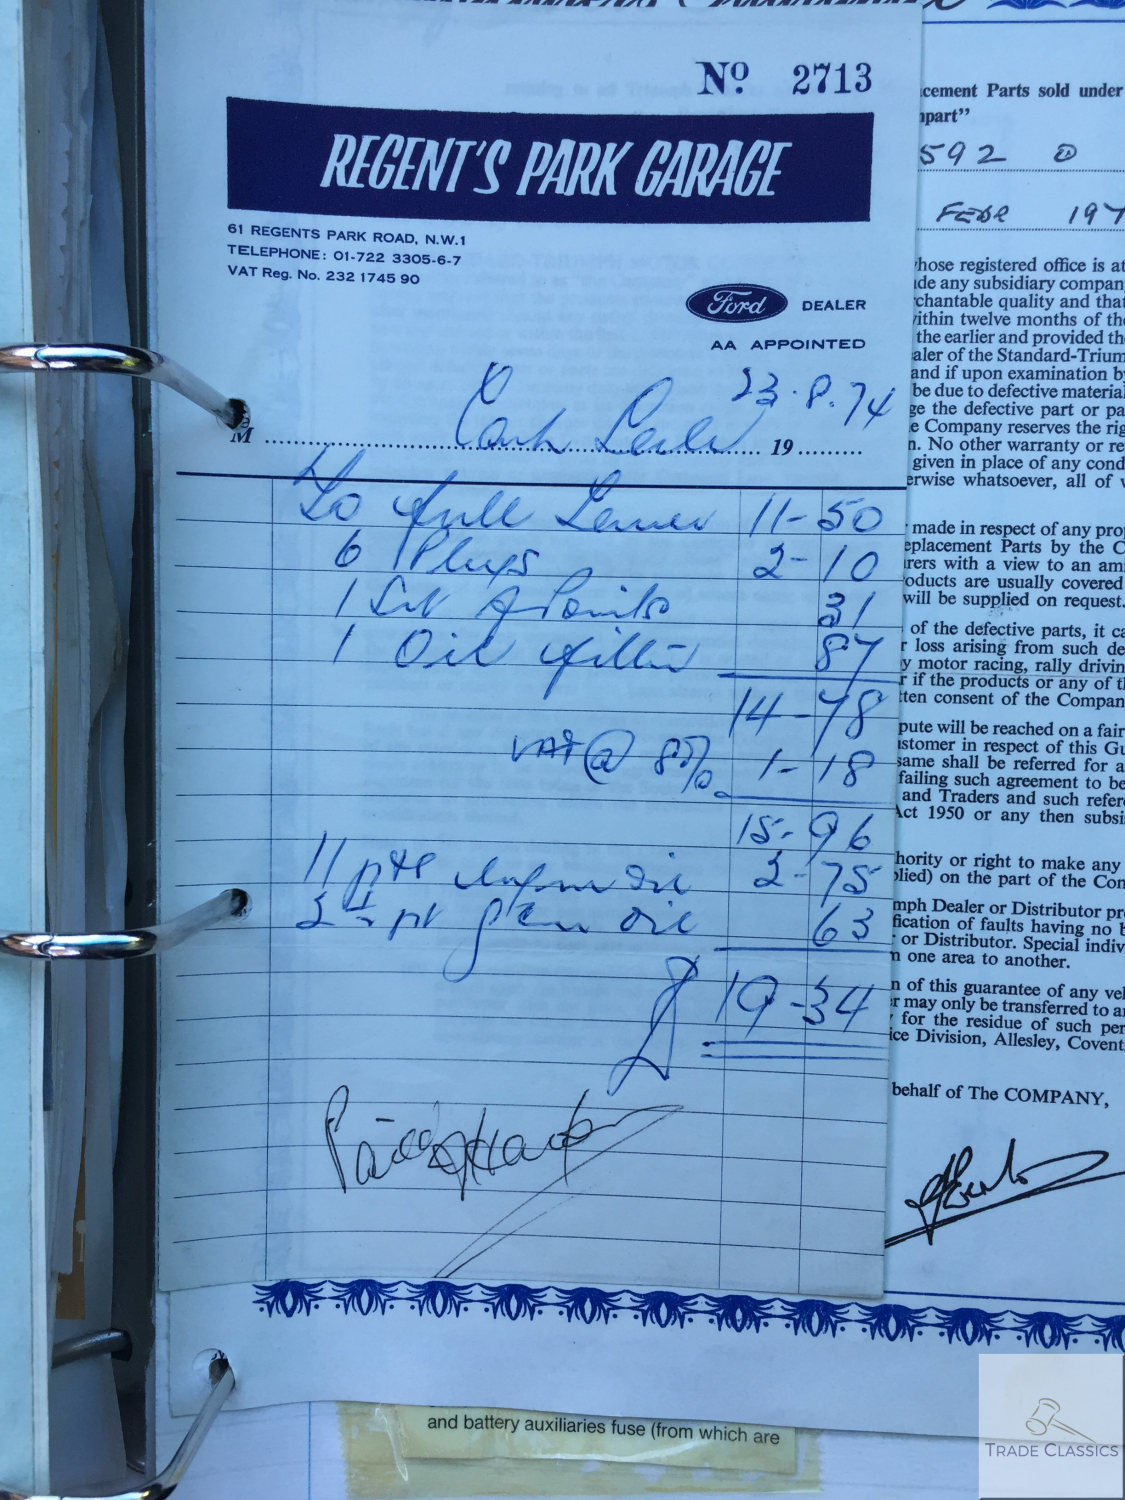 Nº 2713
REGENT'S PARK GARAGE
61 REGENTS PARK ROAD, N.W.1
TELEPHONE: 01-722 3305-6-7
VAT Reg. No. 232 1745 90
Ford DEALER
AA APPOINTED
23.8.74
M Cash 19
To full 11-50
6 Plugs 2-10
1 Set of Points 31
1 Oil filter 87
14-78
VAT @ 8% 1-18
15-96
11 pts engine oil 2-75
pt gear oil 63
£ 19-34
Paid
cement Parts sold under
part”
592
FEBR 197
hose registered office is at
de any subsidiary company
chantable quality and that
ithin twelve months of the
the earlier and provided th
aler of the Standard-Trium
and if upon examination b
be due to defective material
ge the defective part or pa
e Company reserves the rig
n. No other warranty or re
given in place of any cond
erwise whatsoever, all of
made in respect of any pro
eplacement Parts by the C
rers with a view to an am
oducts are usually covered
will be supplied on request.
of the defective parts, it ca
r loss arising from such de
y motor racing, rally drivin
r if the products or any of t
tten consent of the Compan
pute will be reached on a fair
istomer in respect of this Gu
same shall be referred for a
failing such agreement to be
and Traders and such refer
Act 1950 or any then subsi
hority or right to make any
lied) on the part of the Con
mph Dealer or Distributor pr
fication of faults having no b
or Distributor. Special indiv
m one area to another.
n of this guarantee of any veh
r may only be transferred to a
for the residue of such per
ice Division, Allesley, Covent
behalf of The COMPANY,
and battery auxiliaries fuse (from which are
TRADE CLASSICS